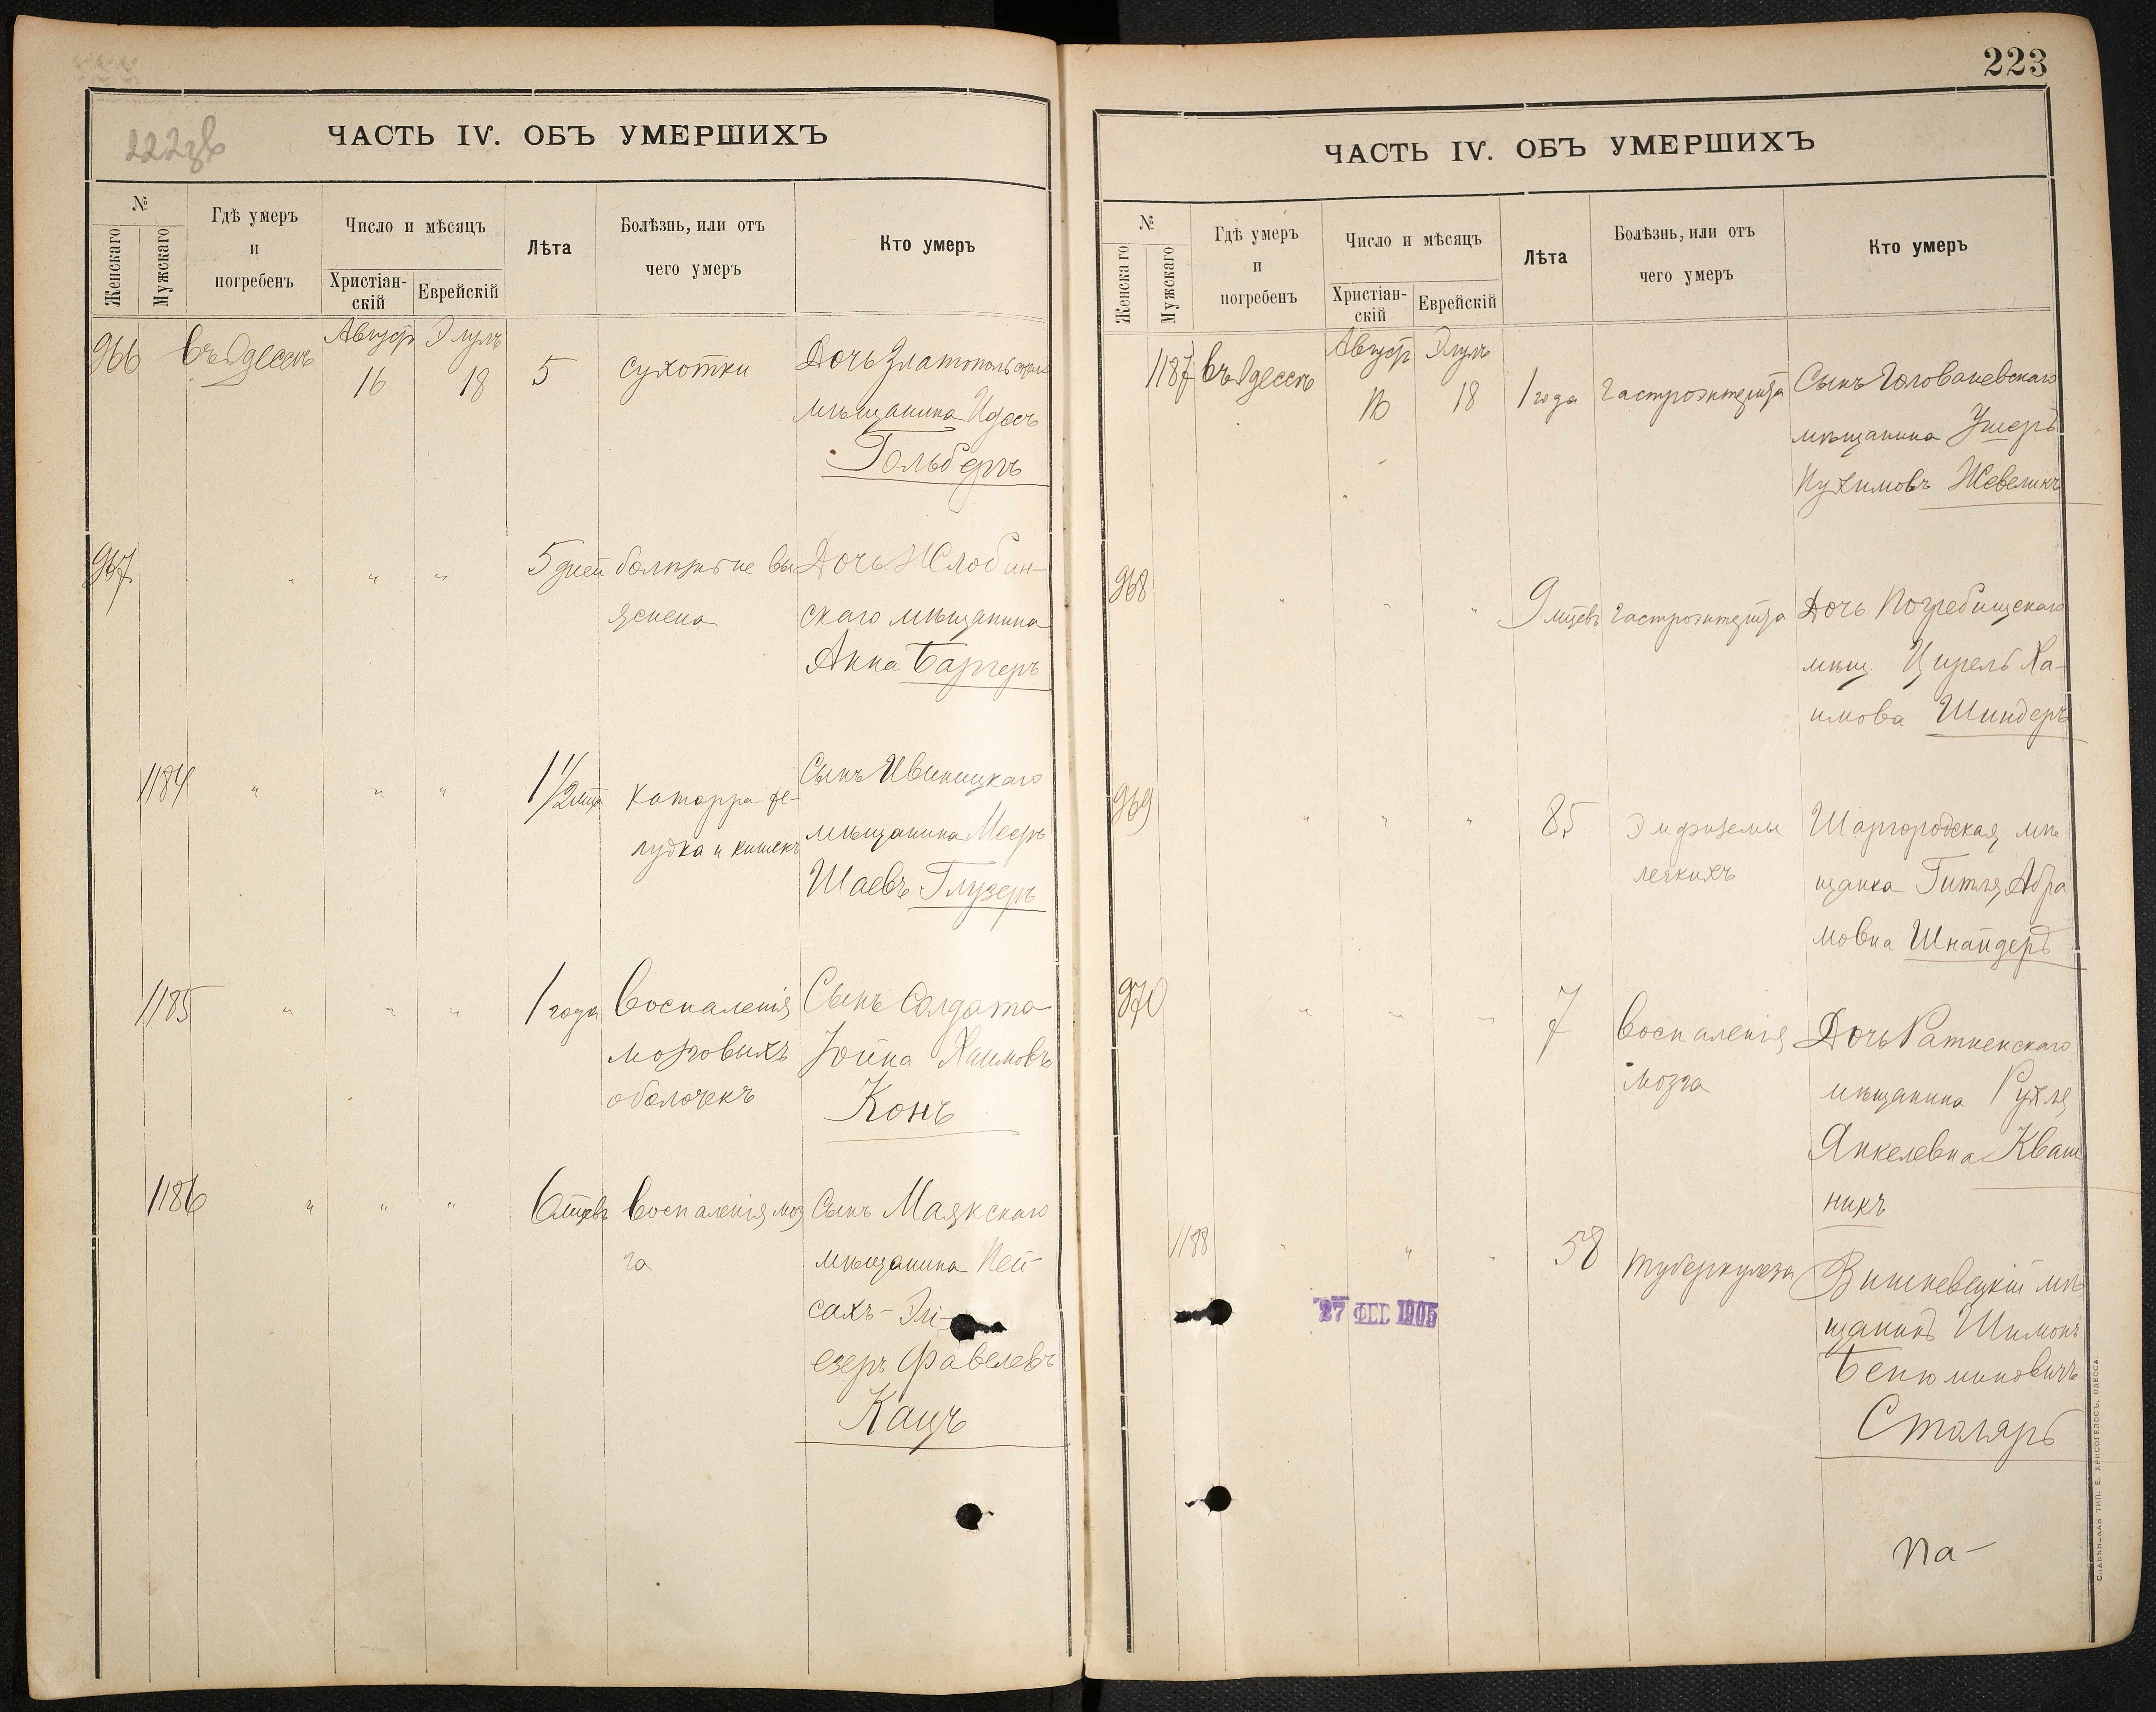 222зв
ЧАСТЬ IV. ОБЪ УМЕРШИХЪ
№
Женскаго
Мужскаго
Гдѣ умеръ
и
погребенъ
Число и мѣсяцъ
Христіан-
скій
Еврейскій
Лѣта
Болѣзнь, или отъ
чего умеръ
Кто умеръ
966 въ Одессѣ Август Элулъ 5 сухотки Дочь Златопольскаго
16 18
мѣщанина Идесъ
Гольберъ
967 " " " 5 дней болѣзнь не вы Дочь Жлобин-
яснена скаго мѣщанина
Анна Баргеръ
1184 " " " 1 1/2 катарра же- Сынъ Ивницкаго
лудка и кишекъ мѣщанина Мееръ
Шаевъ Глузеръ
1185 " " " 1 года Воспаленія Сынъ Солдата
мозговыхъ Іойна Хаимовъ
оболочекъ Конъ
1186 " " " 6 мцевъ Воспаленія моз Сынъ Маякскаго
га мѣщанина Пей-
сахъ-Эли-
езеръ Фавелевъ
Кацъ
223
ЧАСТЬ IV. ОБЪ УМЕРШИХЪ
№
Женскаго
Мужскаго
Гдѣ умеръ
и
погребенъ
Число и мѣсяцъ
Христіан-
скій
Еврейскій
Лѣта
Болѣзнь, или отъ
чего умеръ
Кто умеръ
1187 въ Одессѣ Август Элулъ 1 года Гастроэнтерита Сынъ Голованевскаго
16 18
мѣщанина Ушеръ
Нухимовъ Жевеликъ
968 " " " 9 мцевъ Гастроэнтерита Дочь Погребищскаго
мѣщ. Цирель Ха-
имова Шиндеръ
969 " " " 85 Эмфиземы Шаргородская мѣ
легкихъ щанка Гитля Абра
мовна Шнайдеръ
970 " " " 7 Воспаленія Дочь Ратненскаго
мозга мѣщанина Рухля
Янкелевна Кваш
никъ
1188 " " " 58 туберкулеза Вишневецкій мѣ
щанинъ Шимонъ
Бенюминовичъ
Столяръ
27 ФЕВ 1905
На-
СЛАВЯНСКАЯ ТИП. Е. ХРИСОГЕЛОСЪ, ОДЕССА.